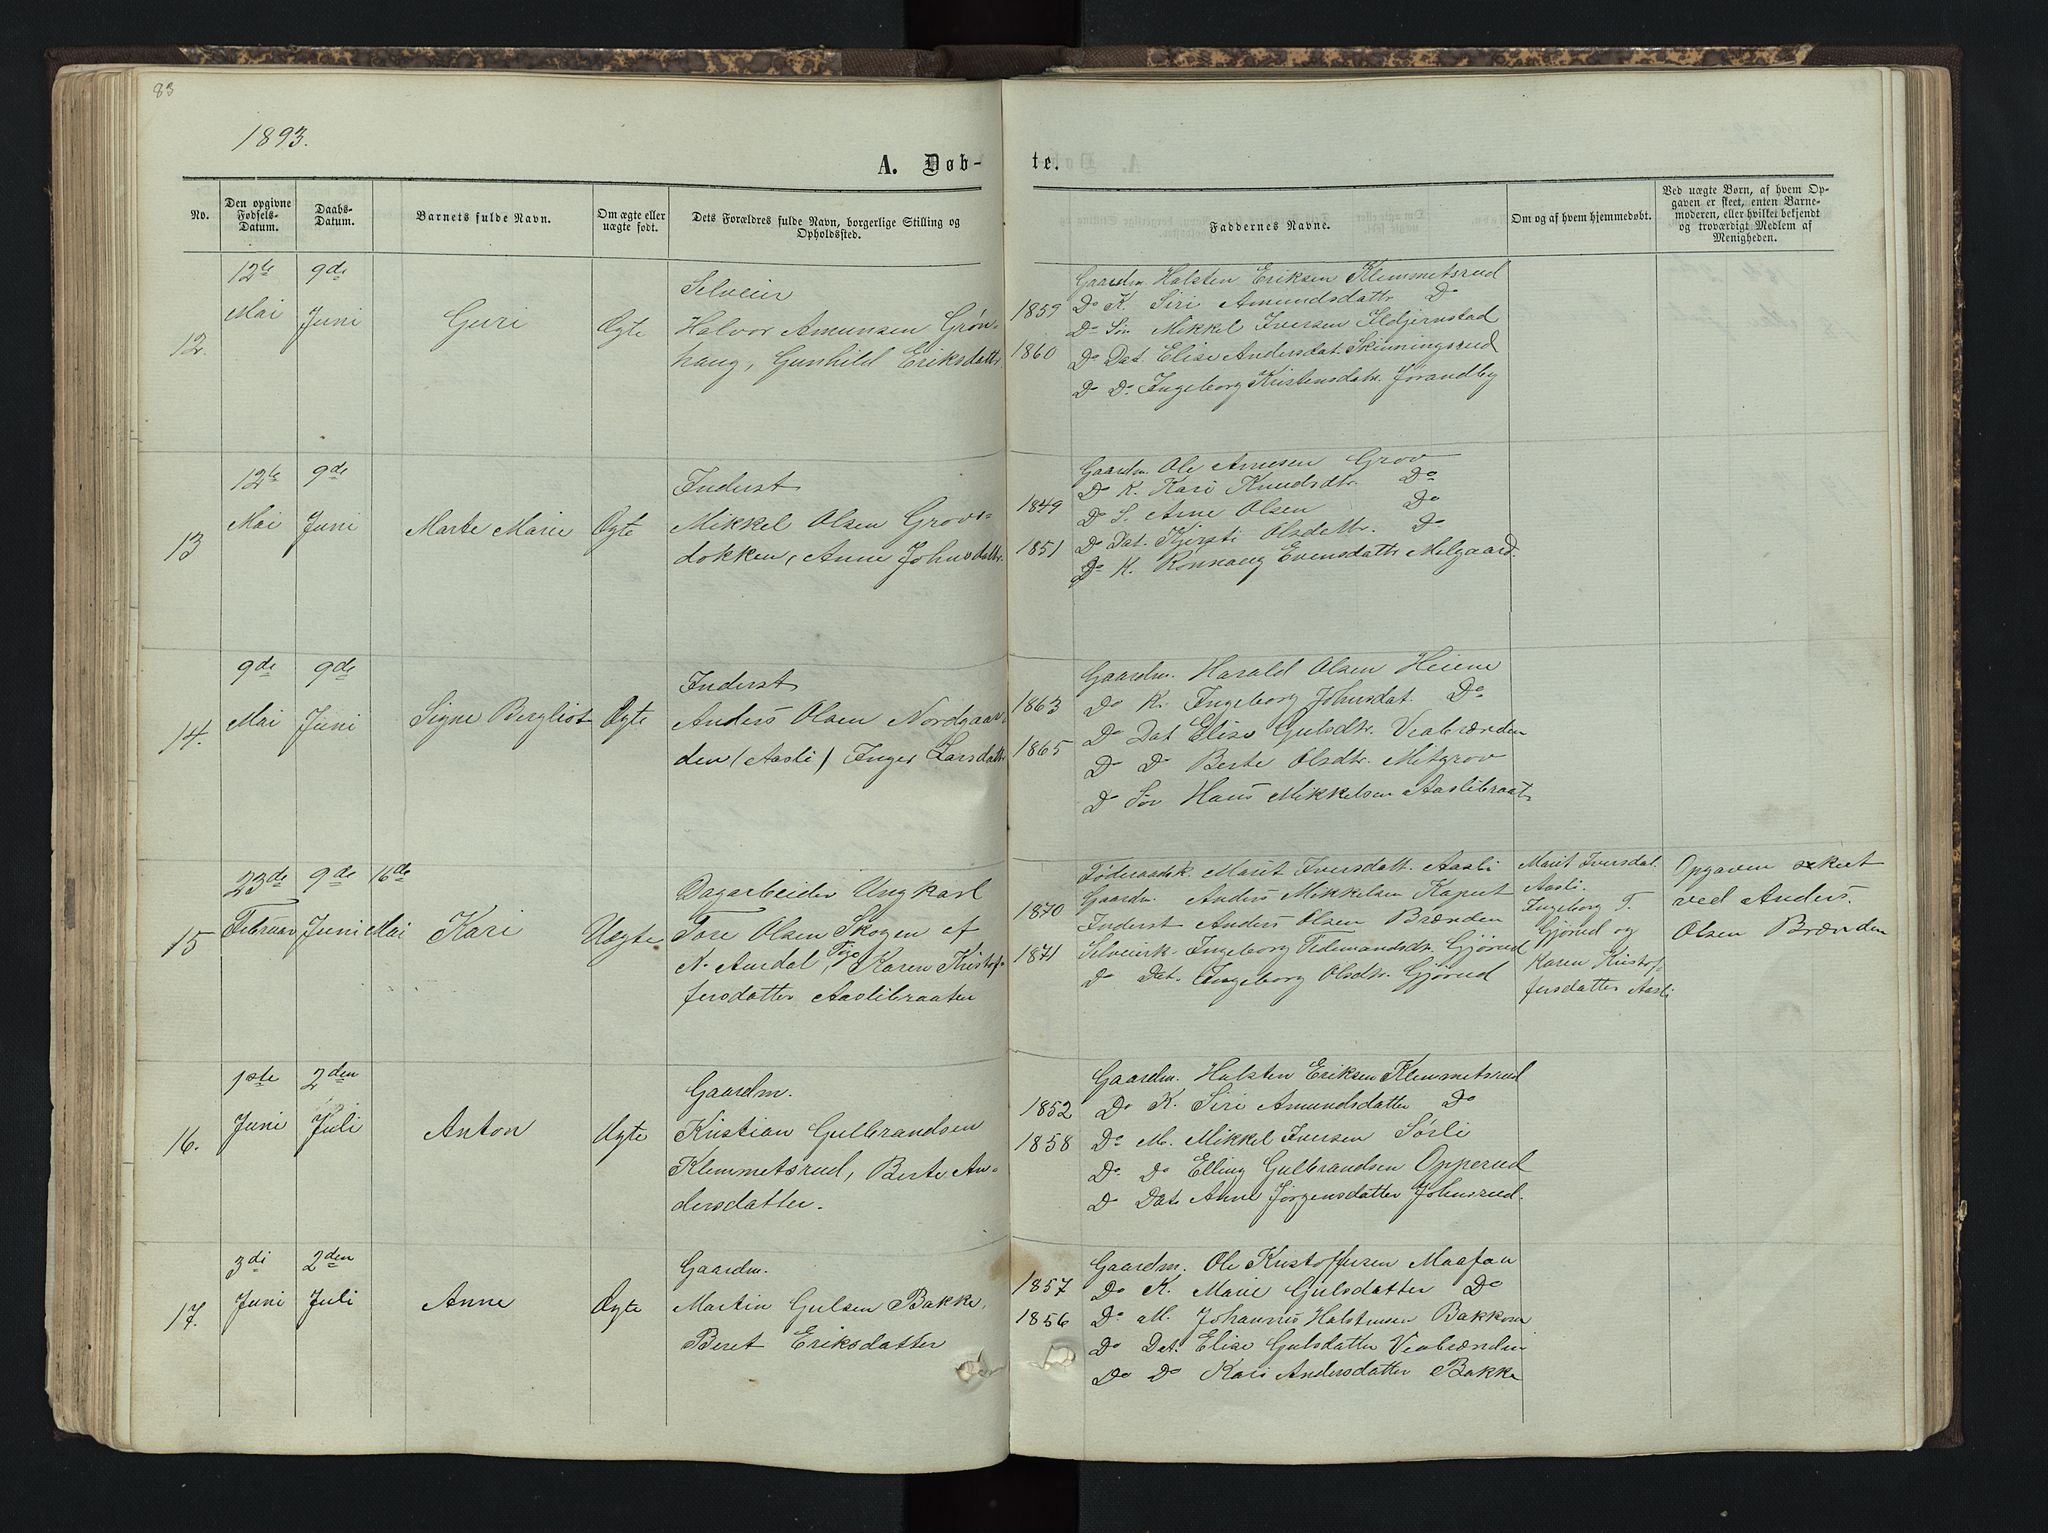 83
1893.
A. Døb-
te.
No.
Den opgivne Fødsels-Datum.
Daabs-Datum.
Barnets fulde Navn.
Om ægte eller uægte født.
Dets Forældres fulde Navn, borgerlige Stilling og Opholdssted.
Faddernes Navne.
Om og af hvem hjemmedøbt.
Ved uægte Børn, af hvem Opgaven er skeet, enten Barnemoderen, eller hvilket bekjendt og troværdigt Medlem af Menigheden.
12.
12te Mai
9de Juni
Guri
Ægte
Selveier
Halvor Amunsen Grøn-
haug, Gunhild Eriksdattr
1859
1860
Gaardm. Halsten Eriksen Klemmetsrud
Do K. Siri Amundsdattr Do
Do Søn Mikkel Iversen Ildjernstad
Do Dat. Elise Andersdat. Skinningsrud
Do Do Ingeborg Kristensdatr. Jørandby
13
12te Mai
9de Juni
Marte Marie
Ægte
Inderst
Mikkel Olsen Grovs-
dokken, Anne Johnsdattr.
1849
1851
Gaardm. Ole Arnesen Grov
Do K. Kari Knudsdtr. Do
Do S. Arne Olsen Do
Do Dat. Kjersti Olsdattr. Do
Do K. Rønnaug Evensdattr Melgaard.
14.
9de Mai
9de Juni
Signe Bergliot
Ægte
Inderst
Anders Olsen Nordgaar-
den (Aasli) Inger Larsdattr
1863
1865
Gaardm. Harald Olsen Heiene
Do K. Ingeborg Johnsdat. Do
Do Dat Elise Gulsdtr. Veabrænden
Do Do Berte Olsdtr. Metgrov
Do Søn Hans Mikkelsen Aaslibraat.
15
23de Februar
9de Juni
16de Mai
Kari
Uægte
Dagarbeider Ungkarl
Tore Olsen Skogen af
N. Aurdal, Pige Karen Kristof-
fersdatter Aaslibraaten
1870
1871
Føderaadsk. Marit Iversdatt. Aasli
Gaardm. Anders Mikkelsen Kapert
Inderst Anders Olsen Brænden
Selveierk. Ingeborg Tidemandsdtr. Gjørud
Do Dat. Ingeborg Olsdtr. Gjørud
Marit Iversdat.
Aasli.
Ingeborg T.
Gjørud og
Karen Kristof-
fersdatter Aasli
Opgaven skeet
ved Anders
Olsen Brænden
16.
1ste Juni
2den Juli
Anton
Ægte
Gaardm.
Kristian Gulbrandsen
Klemmetsrud, Berte An-
dersdatter.
1852
1858
Gaardm. Halsten Eriksen Klemmetsrud
Do K. Siri Amundsdatter Do
Do M. Mikkel Iversen Sørli
Do Do Elling Gulbrandsen Opperud
Do Dat. Anne Jørgensdatter Johnsrud.
17.
3di Juni
2den Juli
Anne
Ægte
Gaardm.
Martin Gulsen Bakke,
Beret Eriksdatter
1857
1856
Gaardm. Ole Kristoffersen
Do K. Marie Gulsdatter Do
Do M. Johannes Halstensen Bakken
Do Dat. Elise Gulsdatter Veabrænden
Do Do Kari Andersdatter Bakke